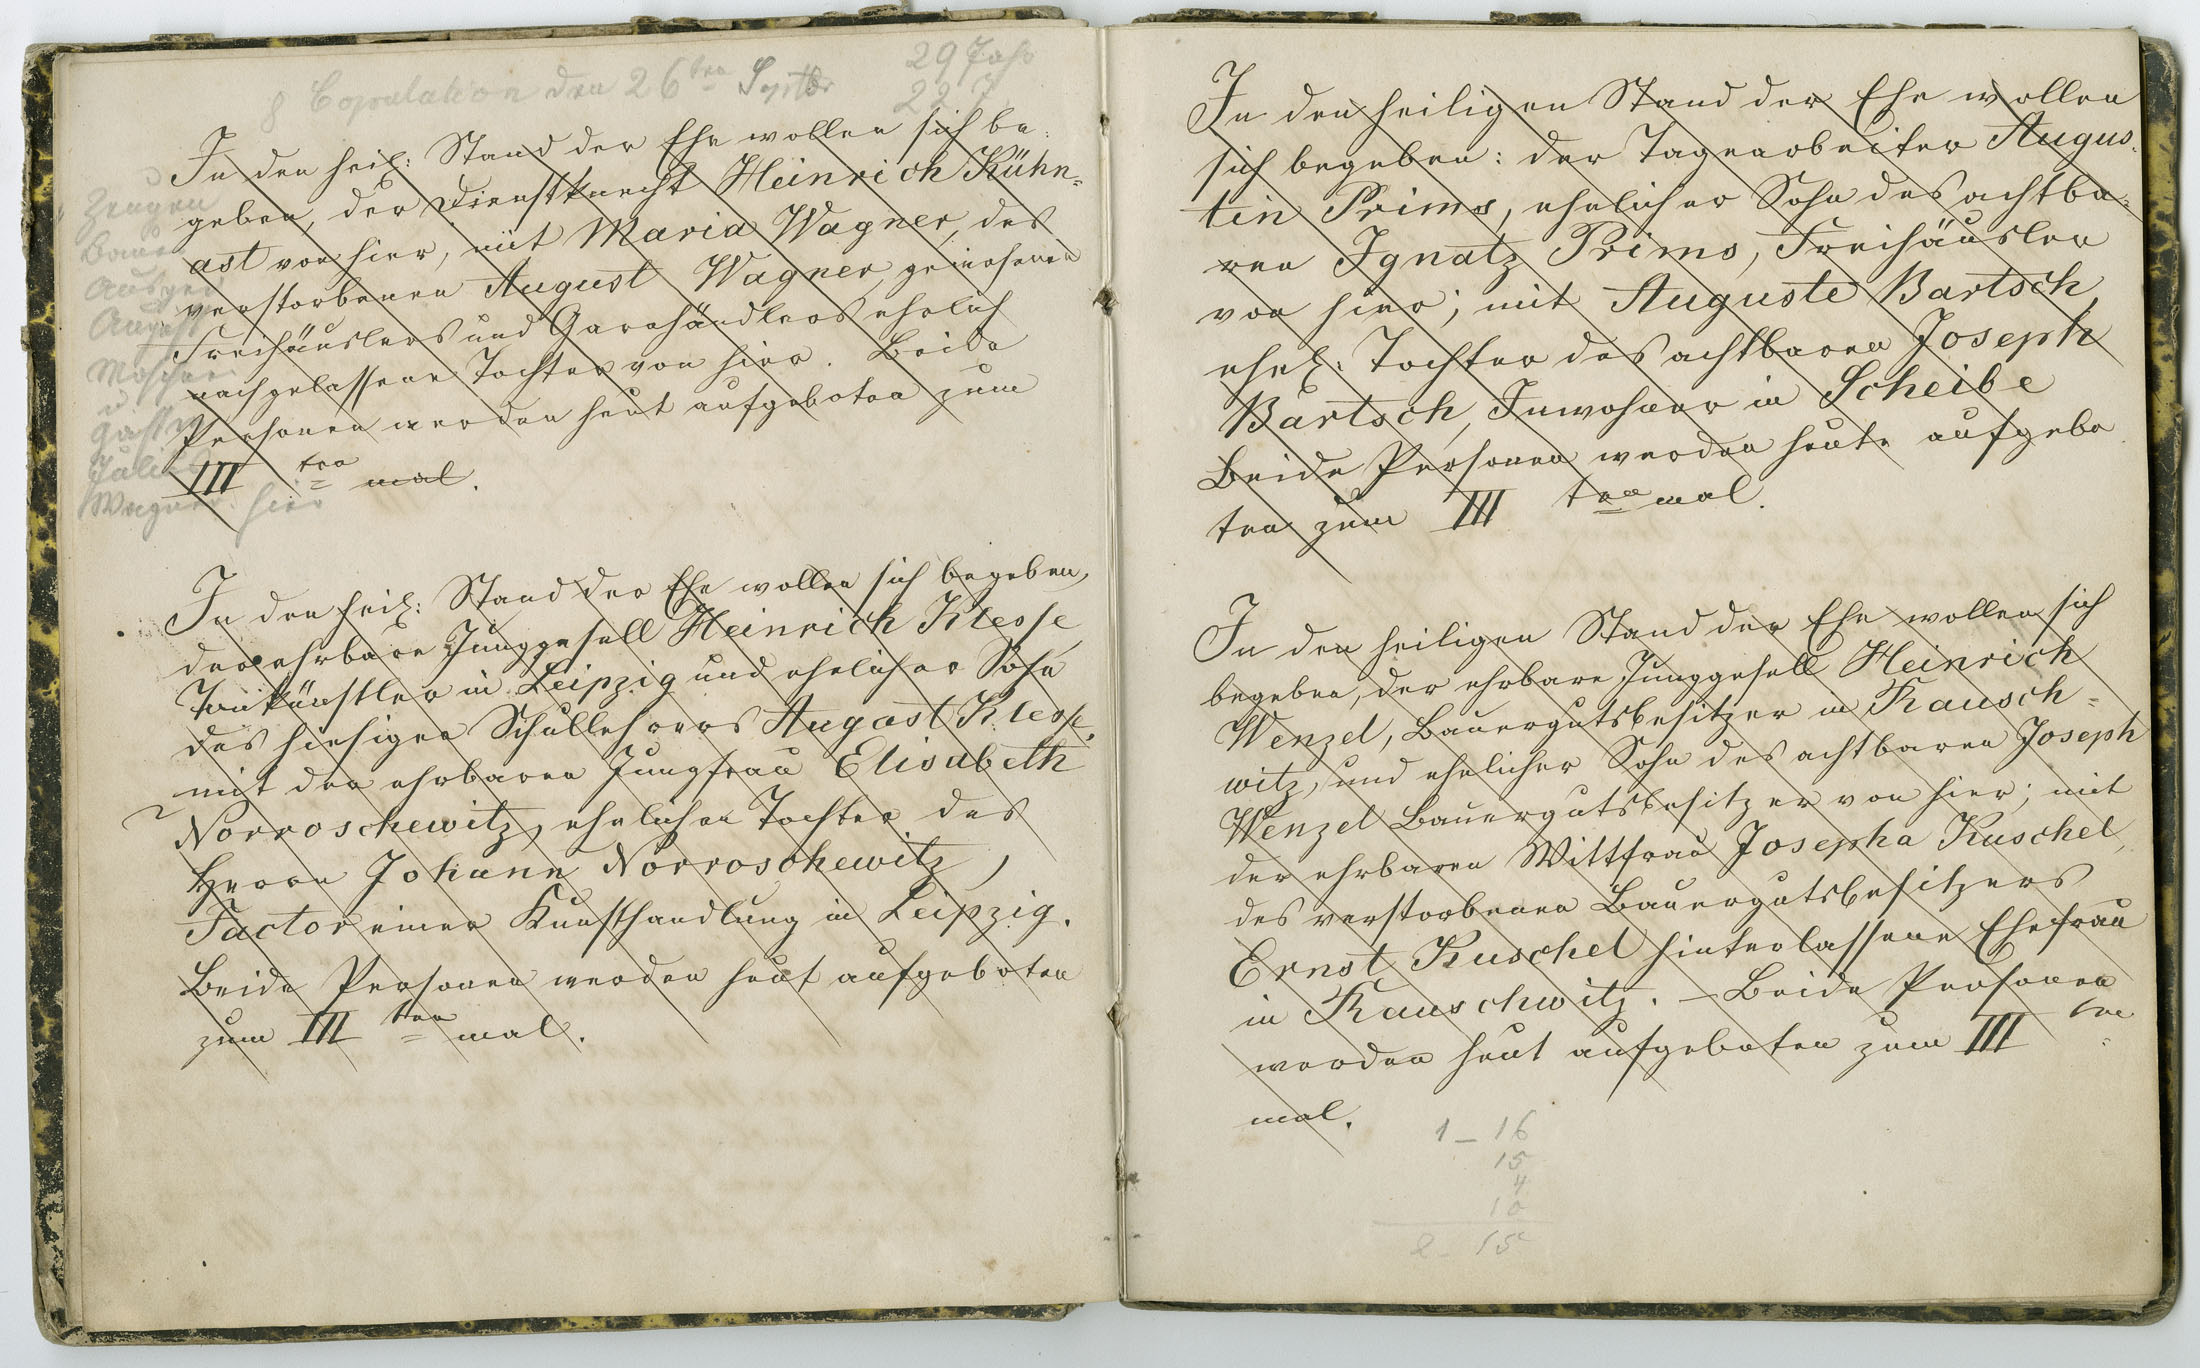 8 Copulation den 26ten Septbr 29 Jahr
22 J
In den heil: Stand der Ehe wollen sich be:
geben, der Dienstknecht Heinrich Kühn=
ast von hier, mit Maria Wagner, des
verstorbenen August Wagner, gewesenen
Freihäuslers und Garnhändlers ehelich
nachgelassene Tochter von hier. Beide
Personen werden heut aufgeboten zum
III ten mal.
Zeugen
Bauer
August
u
Julius
Wagner hier
In den heil: Stand der Ehe wollen sich begeben,
der ehrbare Junggesell Heinrich Klesse,
Tonkünstler in Leipzig und ehelicher Sohn
des hiesigen Schullehrers August Klesse,
mit der ehrbaren Jungfrau Elisabeth
Norroschewitz, ehelichen Tochter des
Herrn Johann Norroschewitz,
Factor einer Kunsthandlung in Leipzig.
Beide Personen werden heut aufgeboten
zum III ten mal.
In den heiligen Stand der Ehe wollen
sich begeben: der Tagearbeiter Augus=
tin Prims, ehelicher Sohn des achtba=
ren Ignatz Prims, Freihäusler
von hier; mit Auguste Bartsch,
ehel: Tochter des achtbaren Joseph
Bartsch, Inwohner in Scheibe
Beide Personen werden heute aufgebo
ten zum III ten mal.
In den heiligen Stand der Ehe wollen sich
begeben, der ehrbare Junggesell Heinrich
Wenzel, Bauergutsbesitzer in Rausch=
witz, und ehelicher Sohn des achtbaren Joseph
Wenzel Bauergutsbesitzer von hier; mit
der ehrbaren Wittfrau Josepha Kuschel,
des verstorbenen Bauergutsbesitzers
Ernst Kuschel hinterlassene Ehefrau
in Rauschwitz. – Beide Personen
werden heut aufgeboten zum III ten
mal.
1 – 16
15
4
10
2 – 15